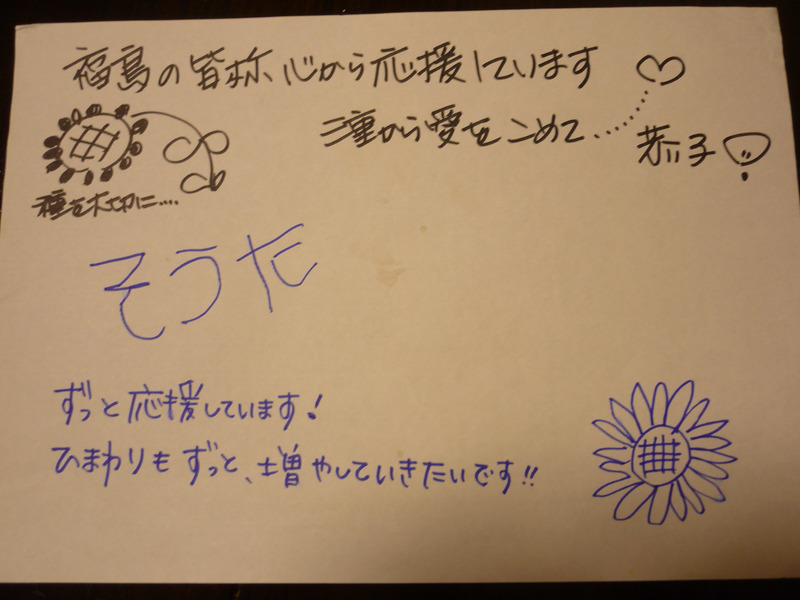 福島の皆様心から応援しています
三重から愛をこめて・・・・・・・
恭子
種を大切に・・・・
そうた
ずっと応援しています!
ひまわりもずっと、増やしていきたいです!!